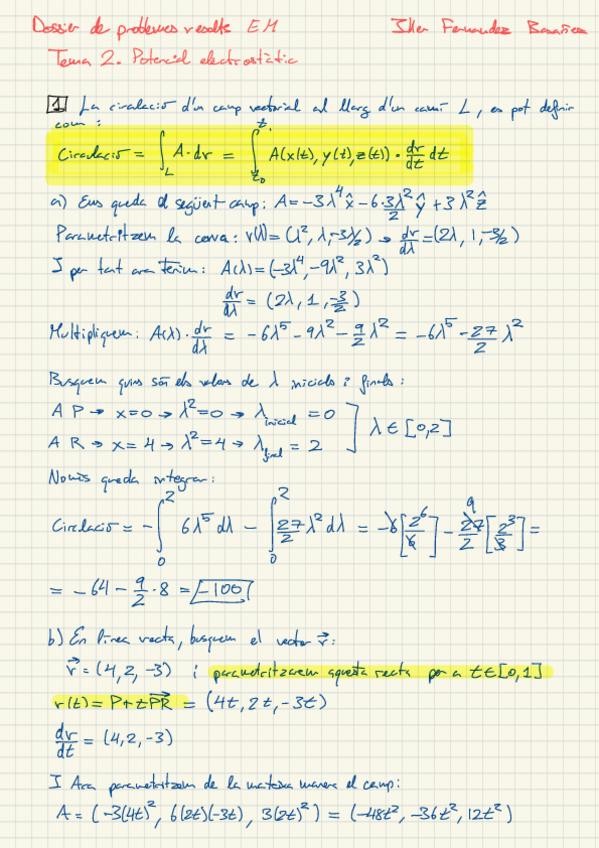 Dossier de problemes resolts EM Iker Fernandez
Tema 2. Potencial electrostàtic
1 La circulació d'un camp vectorial al llarg d'un camí L, es pot definir
com:
Circulació = ∫_L A·dr = ∫_{t₀}^{t₁} A(x(t), y(t), z(t)) · dr/dt dt
a) Ens queda el següent camp: A = -3λ⁴ x̂ - 6·3λ²/2 ŷ + 3λ² ẑ
Parametritzem la corva: r(λ) = (λ², λ, -3λ/2) → dr/dλ = (2λ, 1, -3/2)
I per tant ara tenim: A(λ) = (-3λ⁴, -9λ², 3λ²)
dr/dλ = (2λ, 1, -3/2)
Multipliquem: A(λ)·dr/dλ = -6λ⁵ - 9λ² - 9/2 λ² = -6λ⁵ - 27/2 λ²
Busquem quins són els valors de λ inicials i finals:
A P → x=0 → λ²=0 → λ_inicial = 0
A R → x=4 → λ²=4 → λ_final = 2 ] λ ∈ [0,2]
Només queda integrar:
Circulació = -∫₀² 6λ⁵ dλ - ∫₀² 27/2 λ² dλ = -6[2⁶/6] - 27/2 [2³/3] =
9
= -64 - 9/2 · 8 = -100
b) En línea recta, busquem el vector r⃗:
r⃗ = (4, 2, -3) i parametritzarem aquesta recta per a t∈[0,1]
r(t) = P + tPR⃗ = (4t, 2t, -3t)
dr/dt = (4, 2, -3)
I Ara parametritzem de la mateixa manera el camp:
A = (-3(4t)², 6(2t)(-3t), 3(2t)²) = (-48t², -36t², 12t²)